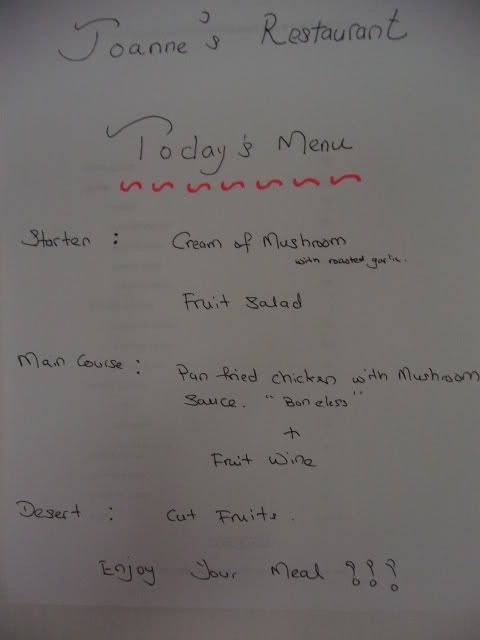 Joanne's Restaurant
Today's Menu
Starter : Cream of Mushroom
with roasted garlic.
Fruit Salad
Main Course : Pan fried chicken with Mushroom
Sauce. "Boneless"
+
Fruit Wine
Desert : Cut Fruits.
Enjoy Your Meal !!!